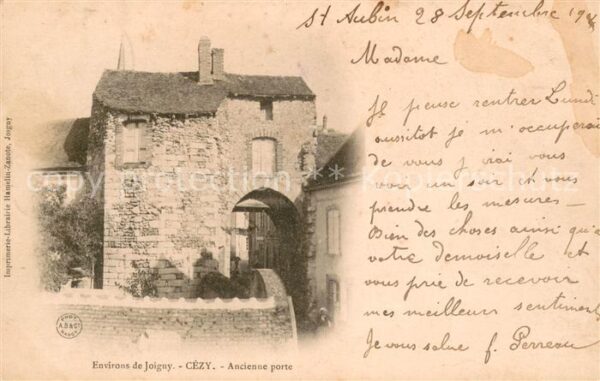 St Aubin 28 Septembre 19
Madame
Je pense rentrer Lundi
aussitot je m'occuperai
de vous j'irai vous
voir un soir et vous
prendre les mesures —
Bien des choses ainsi qu'à
votre demoiselle et
vous prie de recevoir
mes meilleurs sentiments
Je vous salue f. Perreau
Imprimerie-Librairie Hamelin-Zanote, Joigny
copyright protection Kopierschutz
Environs de Joigny. - CÉZY. - Ancienne porte